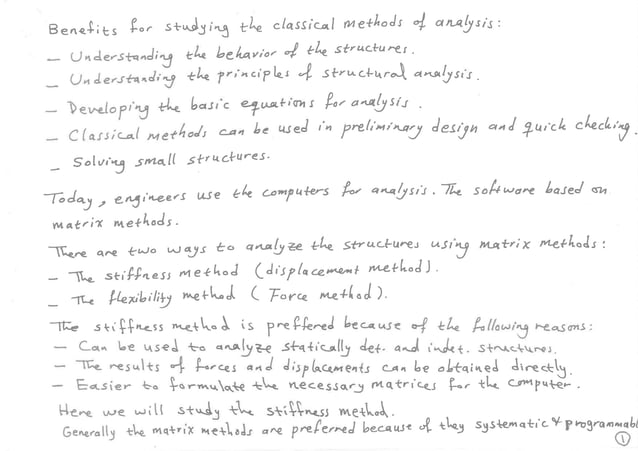 Benefits for studying the classical methods of analysis:
- Understanding the behavior of the structures.
- Understanding the principles of structural analysis.
- Developing the basic equations for analysis.
- Classical methods can be used in preliminary design and quick checking.
- Solving small structures.
Today, engineers use the computers for analysis. The software based on
matrix methods.
There are two ways to analyze the structures using matrix methods:
- The stiffness method (displacement method).
- The flexibility method (Force method).
The stiffness method is preffered because of the following reasons:
- Can be used to analyze statically det. and indet. structures.
- The results of forces and displacements can be obtained directly.
- Easier to formulate the necessary matrices for the computer.
Here we will study the stiffness method.
Generally the matrix methods are preferred because of they systematic & programmabl
1